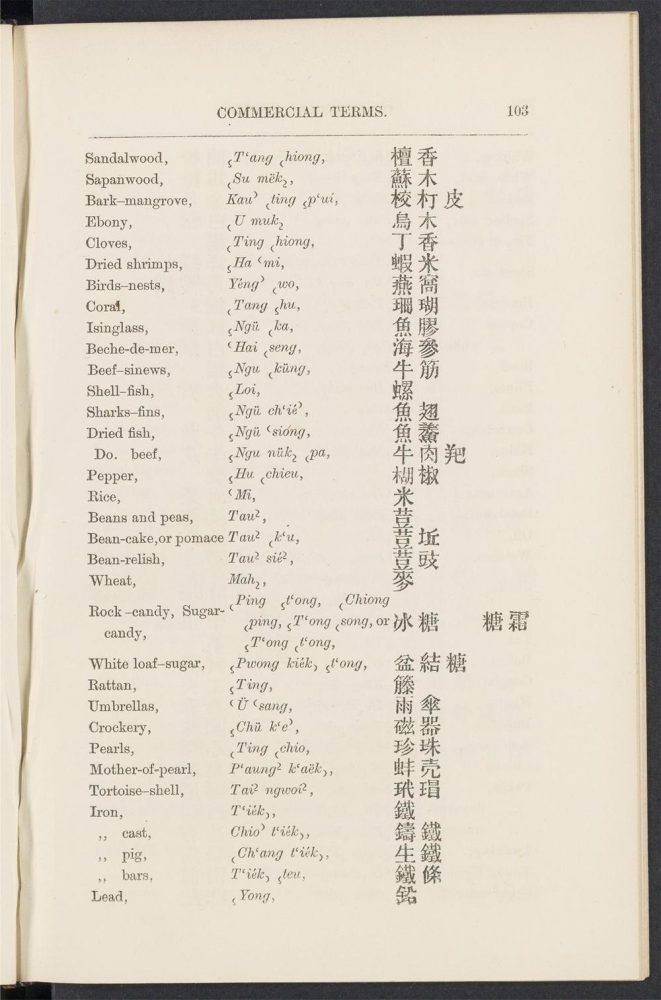 COMMERCIAL TERMS. 103
Sandalwood, ꜁T‘ang ꜀hiong, 檀香
Sapanwood, ꜁Su mëk₂, 蘇木
Bark-mangrove, Kau꜄ ꜀ting ꜁p‘ui, 校朾皮
Ebony, ꜀U muk₂ 烏木
Cloves, ꜀Ting ꜀hiong, 丁香
Dried shrimps, ꜁Ha ꜂mi, 蝦米
Birds-nests, Yéng꜄ ꜀wo, 燕窩
Coral, ꜀Tang ꜁hu, 瑚
Isinglass, ꜁Ngü ꜀ka, 魚膠
Beche-de-mer, ꜂Hai ꜀seng, 海參
Beef-sinews, ꜁Ngu ꜀küng, 牛筋
Shell-fish, ꜁Loi, 螺
Sharks-fins, ꜁Ngü ch‘ié꜄, 魚翅
Dried fish, ꜁Ngü ꜂siong, 魚鯗
Do. beef, ꜁Ngu nük₂ ꜀pa, 牛肉羓
Pepper, ꜁Hu ꜀chieu, 椒
Rice, ꜂Mi, 米
Beans and peas, Tau², 荳
Bean-cake, or pomace Tau² ꜀k‘u, 荳坵
Bean-relish, Tau² sié², 荳豉
Wheat, Mah₂, 麥
꜀Ping ꜁t‘ong, ꜀Chiong
Rock-candy, Sugar- ꜀ping, ꜁T‘ong ꜀song, or 冰糖 糖霜
candy, ꜁T‘ong ꜀t‘ong,
White loaf-sugar, ꜁Pwong kiék꜆ ꜁t‘ong, 盆結糖
Rattan, ꜁Ting, 籐
Umbrellas, ꜂Ü ꜂sang, 雨傘
Crockery, ꜁Chü k‘e꜄, 磁器
Pearls, ꜀Ting ꜀chio, 珍珠
Mother-of-pearl, P‘aung² k‘aëk꜆, 蚌壳
Tortoise-shell, Tai² ngwoi², 玳瑁
Iron, T‘iék꜆, 鐵
„ cast, Chio꜄ t‘iék꜆, 鑄鐵
„ pig, ꜀Ch‘ang t‘iék꜆, 生鐵
„ bars, T‘iék꜆ ꜁teu, 鐵條
Lead, ꜁Yong, 鉛